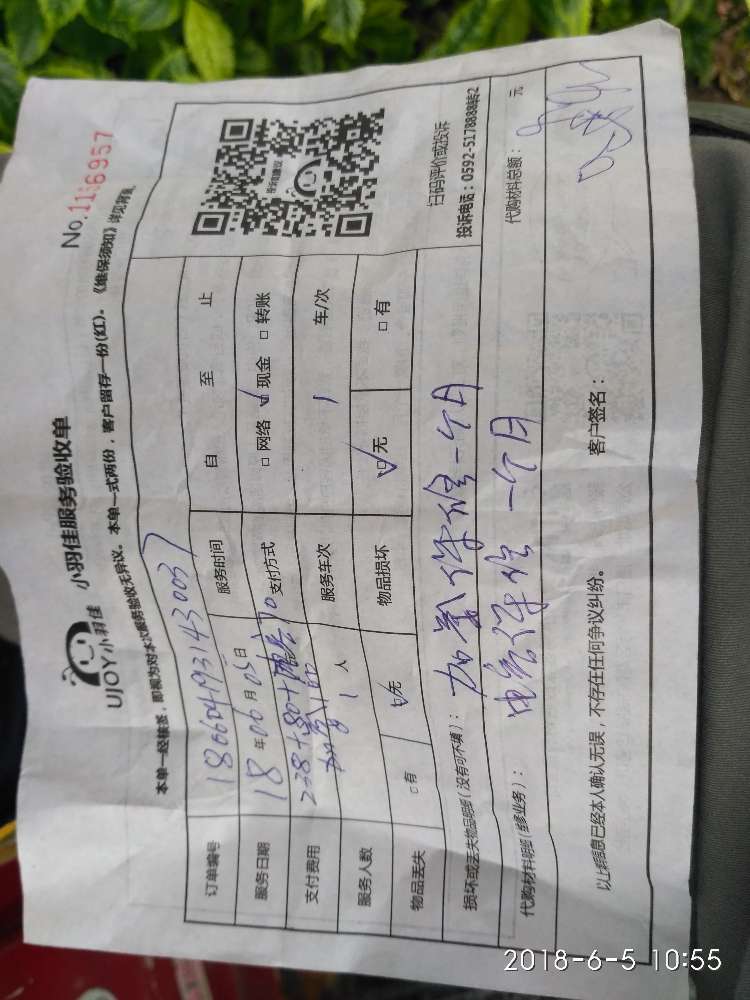 No. 1166957
UJOY小羽佳 小羽佳服务验收单
本单一经核签，即视为对本次服务验收无异议。本单一式两份，客户留存一份(红)。《维保须知》详见背面
订单编号 180604931430037 服务时间 自 至 止
服务日期 18年06月05日 支付方式 □网络 ☑现金 □转账
支付费用 238+80+ 服务车次 1 车/次
加氟100
服务人数 1 人
物品丢失 □有 ☑无 物品损坏 ☑无 □有
投诉和建议
扫码评价或投诉
投诉电话：0592-5178888转2
损坏或丢失物品明细（没有可不填）： 加氟保修一个月
代购材料明细（维修业务）： 内容保修一个月
代购材料总额： 元
以上群信息已经本人确认无误，不存在任何争议纠纷。 客户签名：
2018-6-5 10:55